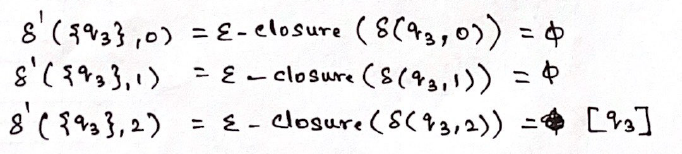 δ'({q₃},0) = ε-closure (δ(q₃,0)) = ϕ
δ'({q₃},1) = ε-closure (δ(q₃,1)) = ϕ
δ'({q₃},2) = ε-closure (δ(q₃,2)) = [q₃]